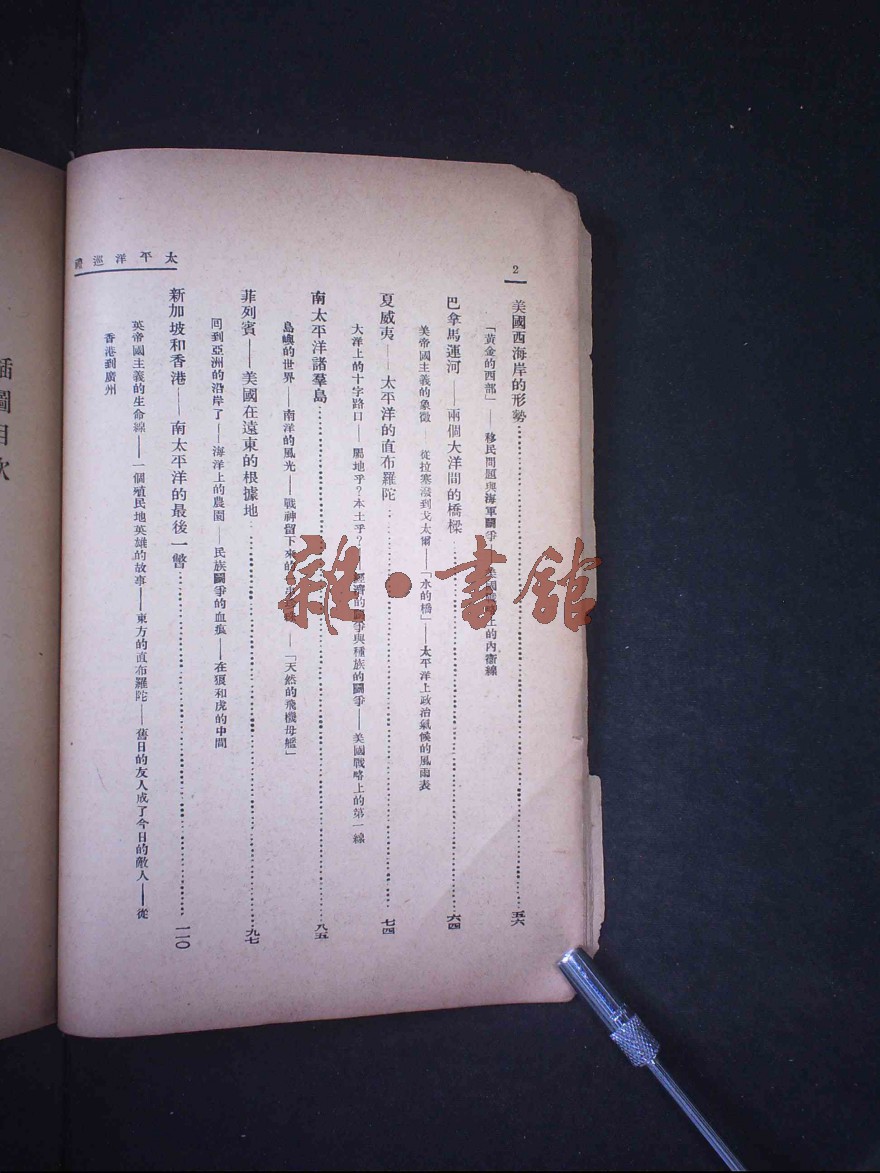 太平洋巡禮
2
美國西海岸的形勢……五六
「黃金的西部」——移民問題與海軍鬭爭——美國 上的內衞線
巴拿馬運河——兩個大洋間的橋樑……六四
美帝國主義的象徵——從拉塞潑到戈太爾——「水的橋」——太平洋上政治氣候的風雨表
夏威夷——太平洋的直布羅陀……七四
大洋上的十字路口——屬地乎?本土乎?——經濟的鬭爭與種族的鬭爭——美國戰略上的第一線
南太平洋諸羣島……八五
島嶼的世界——南洋的風光——戰神留下來的 ——「天然的飛機母艦」
菲列賓——美國在遠東的根據地……九七
囘到亞洲的沿岸了——海洋上的農園——民族鬭爭的血痕——在狼和虎的中間
新加坡和香港——南太平洋的最後一瞥……一一〇
英帝國主義的生命線——一個殖民地英雄的故事——東方的直布羅陀——舊日的友人成了今日的敵人——從
香港到廣州
插圖目次
雜·書館